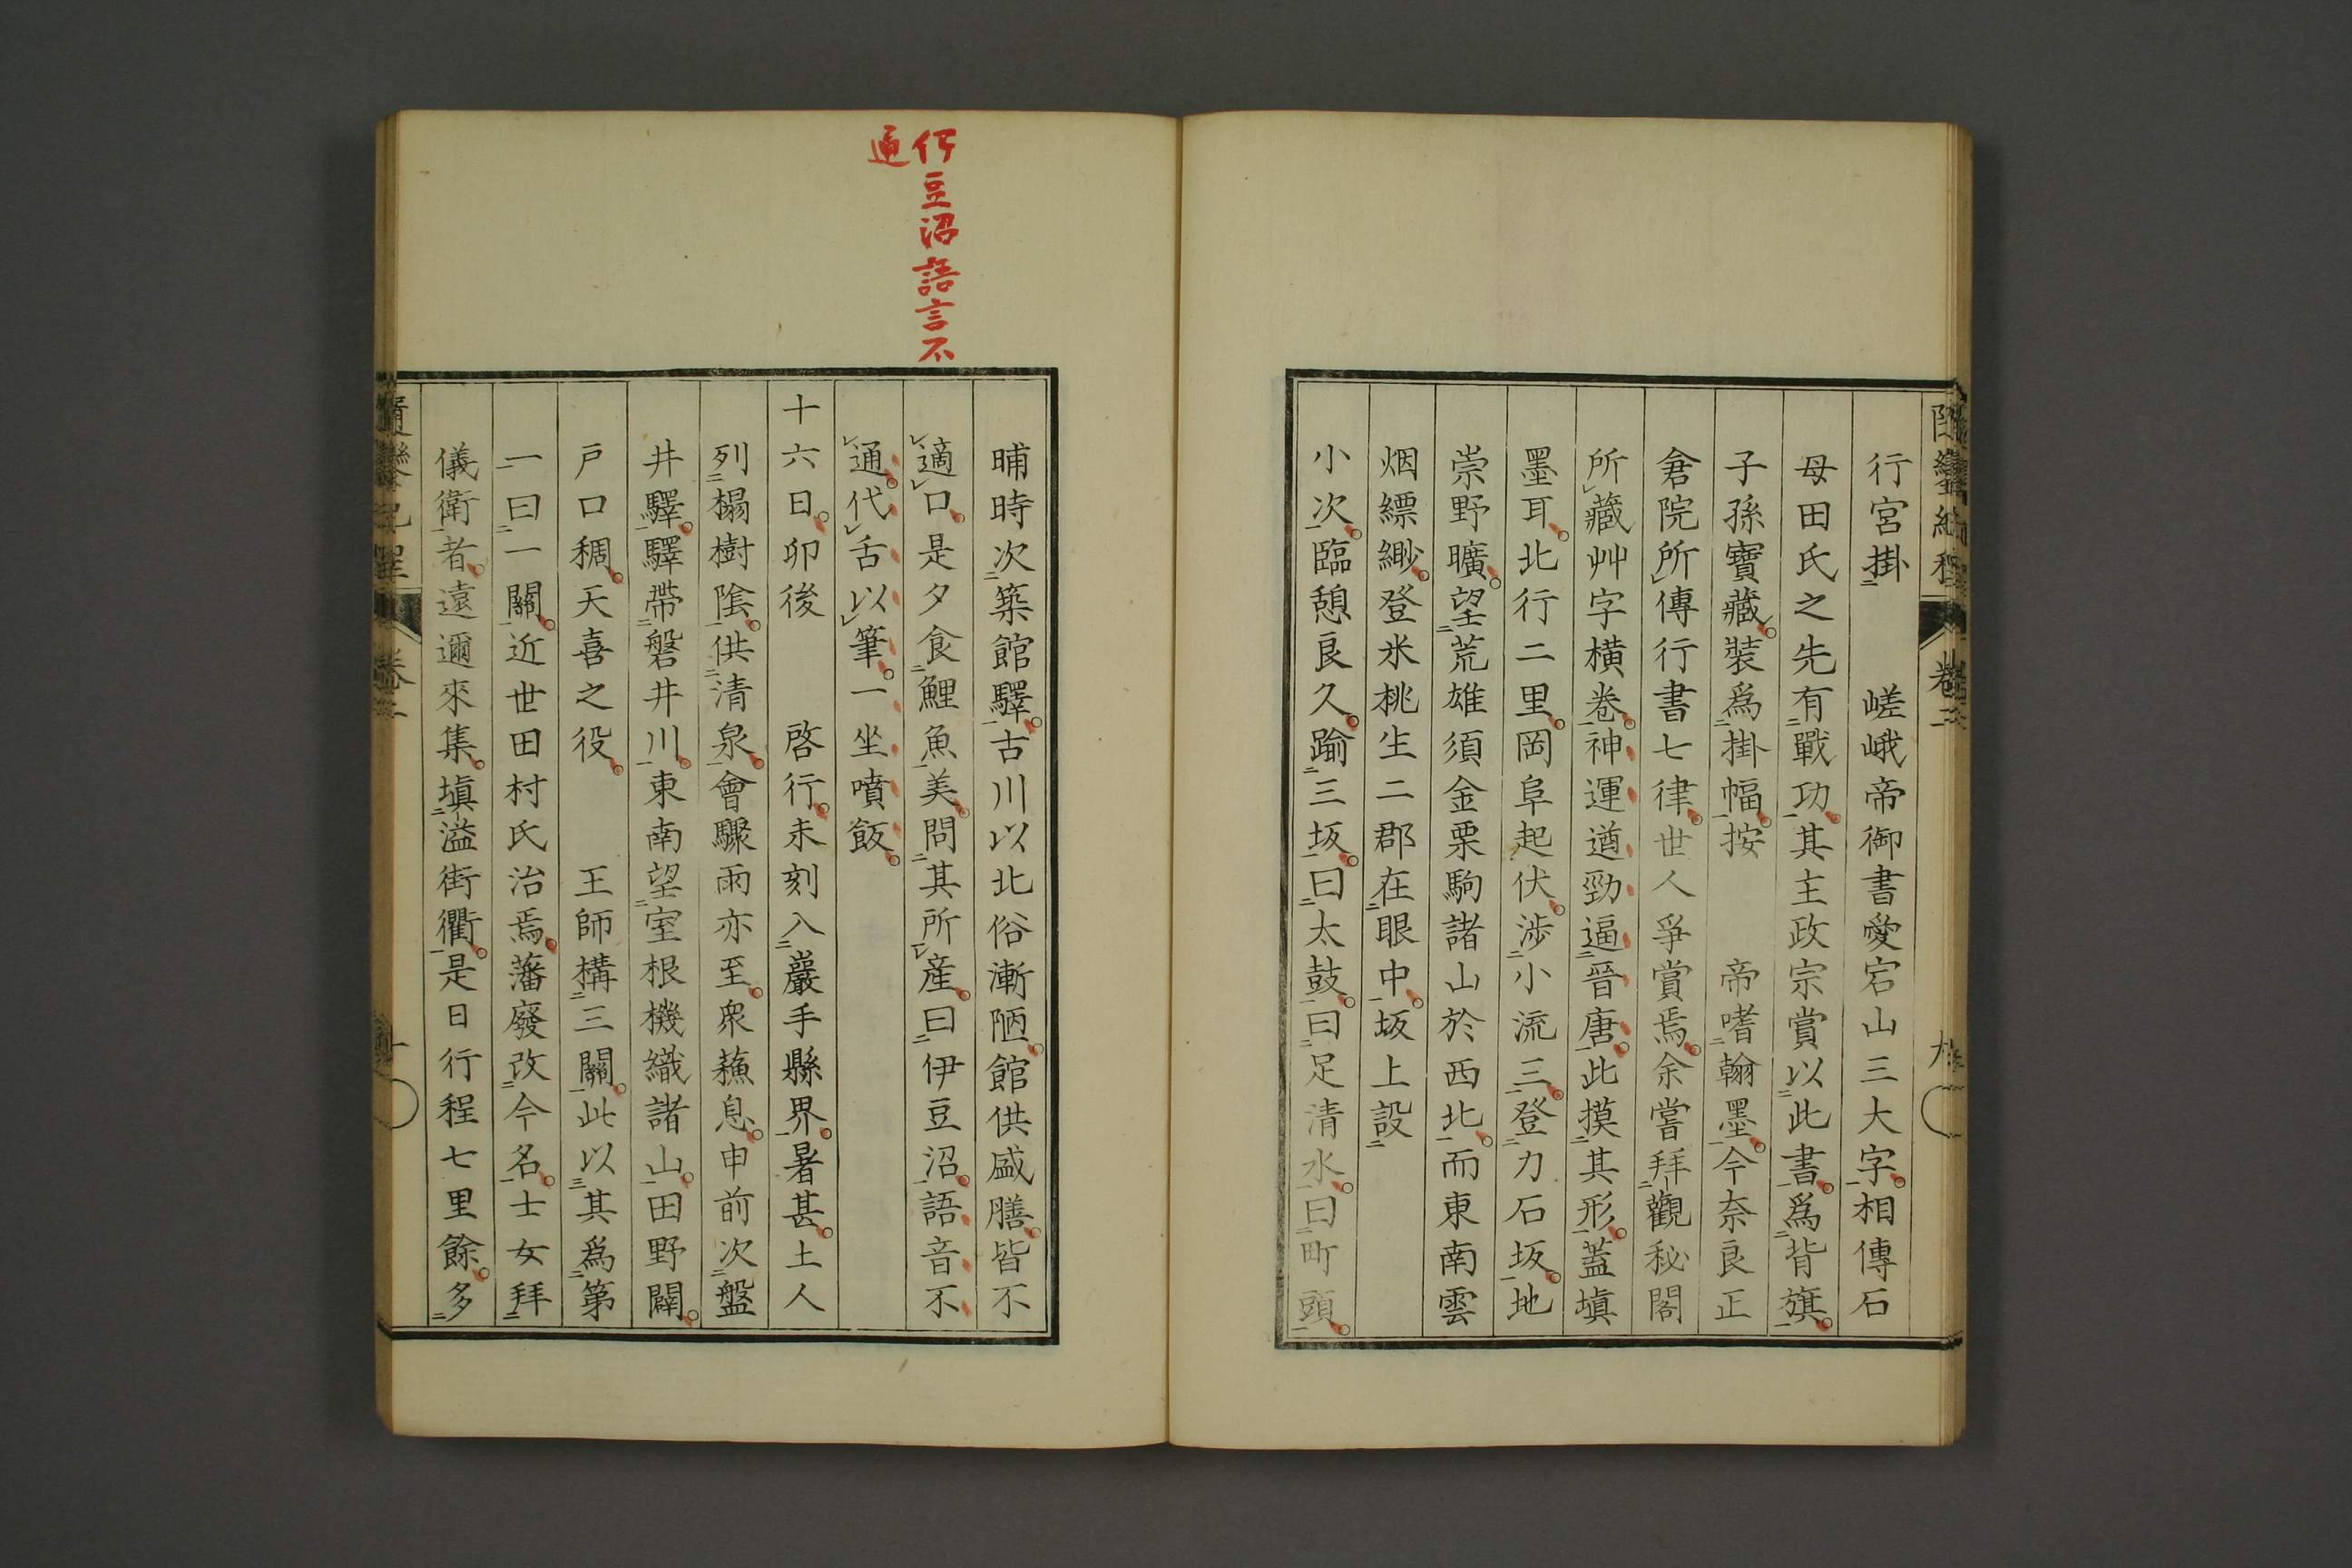 行宮掛　嵯峨帝御書愛宕山三大字相傳石
母田氏之先有戰功其主政宗賞以此書爲背旗
子孫寶藏裝爲掛幅按　帝嗜翰墨今奈良正
倉院所傳行書七律世人爭賞焉余嘗拜觀秘閣
所藏艸字橫卷神運遒勁逼晉唐此摸其形蓋塡
墨耳北行二里岡阜起伏渉小流三登力石坂地
崇野曠望荒雄須金栗駒諸山於西北而東南雲
烟縹緲登米桃生二郡在眼中坂上設
小次臨憩良久踰三坂曰太鼓曰足清水曰町頭
晡時次築館驛古川以北俗漸陋館供盛膳皆不
適口是夕食鯉魚美問其所產曰伊豆沼語音不
通代舌以筆一坐噴飯
十六日卯後　啓行未刻入巖手縣界暑甚土人
列榻樹陰供清泉會驟雨亦至衆蘓息申前次盤
井驛驛帶磐井川東南望室根機織諸山田野闢
戸口稠天喜之役　王師構三關此以其爲第
一曰一關近世田村氏治焉藩廢改今名士女拜
儀衛者遠邇來集塡溢街衢是日行程七里餘多
伊豆沼語言不
通